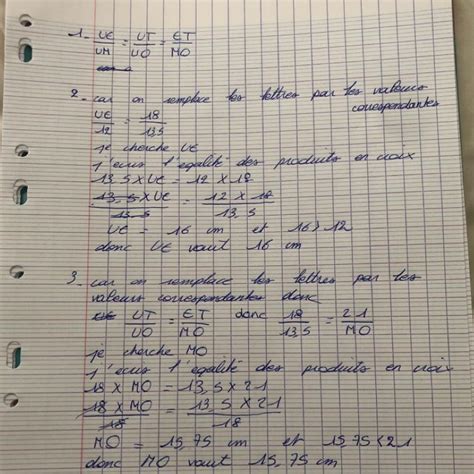 1- UE/UM = UT/UO = ET/MO
2- car on remplace les lettres par les valeurs
correspondantes
UE/12 = 18/13,5
je cherche UE
j'écris l'égalité des produits en croix
13,5 x UE = 12 x 18
13,5 x UE/13,5 = 12 x 18/13,5
UE = 16 cm et 16 > 12
donc UE vaut 16 cm
3- car on remplace les lettres par les
valeurs correspondantes donc
UT/UO = ET/MO donc 18/13,5 = 21/MO
je cherche MO
j'écris l'égalité des produits en croix
18 x MO = 13,5 x 21
18 x MO/18 = 13,5 x 21/18
MO = 15,75 cm et 15,75 < 21
donc MO vaut 15,75 cm